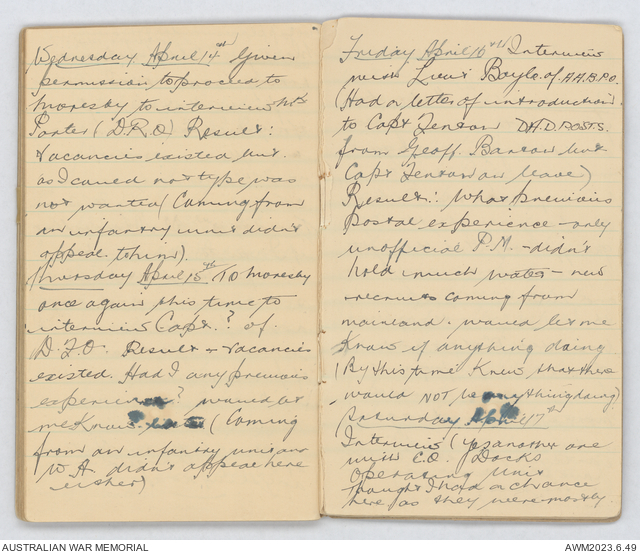 Wednesday April 14th Given
permission to proceed to
Moresby to interview Mr
Porter (D.R.O) Result:
Vacancies existed but
as I couldn't type was
not wanted (Coming from
an infantry unit didn't
appeal to him).
Thursday April 15th To Moresby
once again this time to
interview Capt. ? of
D.F.O. Result - Vacancies
existed. Had I any previous
experience? would let
me know later (Coming
from an infantry unit
didn't appeal here
either)
Friday April 16th Interview
with Lieut Boyle of A.A.B.P.O.
(Had a letter of introduction
to Capt Fenton D.A.D. POSTS.
from Geoff. Barton but
Capt Fenton on leave)
Result: What previous
postal experience - only
unofficial P.M. - didn't
hold much water - new
recruits coming from
mainland. would let me
know if anything doing
(By this time knew that there
would NOT be anything doing)
Saturday April 17th
Interview (yes another one
with C.O. Docks
Operating Unit
thought I had a chance
here as they were mostly
AUSTRALIAN WAR MEMORIAL
AWM2023.6.49